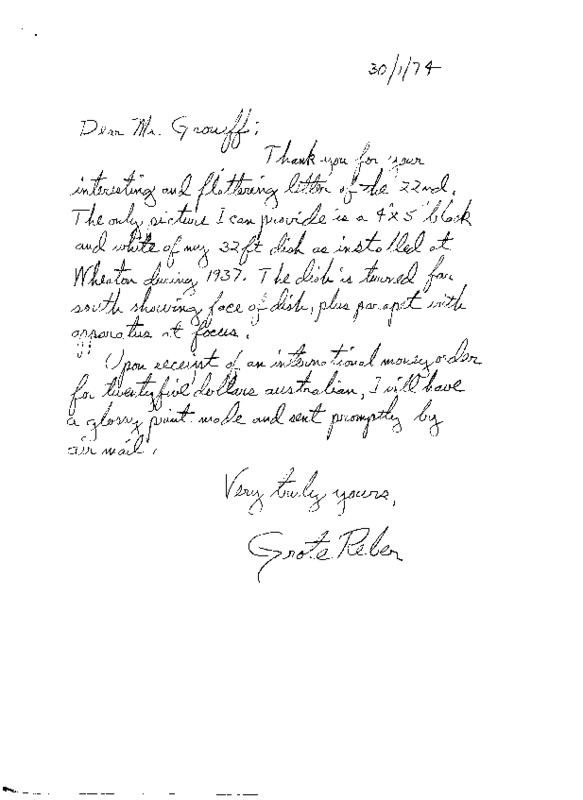 30/1/74
Dear Mr. Groueff:
Thank you for your
interesting and flattering letter of the 22nd.
The only picture I can provide is a 4"x5" black
and white of my 32 ft dish as installed at
Wheaton during 1937. The dish is turned far
south showing face of dish, plus parapet with
apparatus at focus.
Upon receipt of an international money order
for twentyfive dollars australian, I will have
a glossy print made and sent promptly by
air mail.
Very truly yours,
Grote Reber